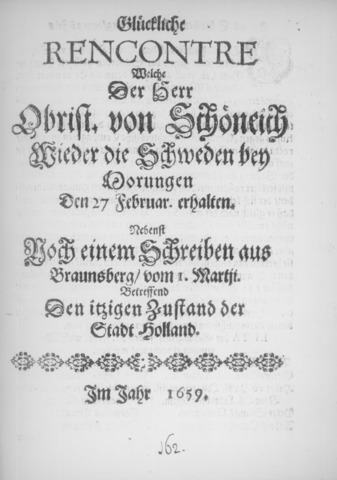 Glückliche
RENCONTRE
Welche
Der Herr
Obrist. von Schöneich
Wieder die Schweden bey
Morungen
Den 27 Februar. erhalten.
Nebenst
Noch einem Schreiben aus
Braunsberg/ vom 1. Martji.
Betreffend
Den itzigen Zustand der
Stadt Holland.
Im Jahr 1659.
162.